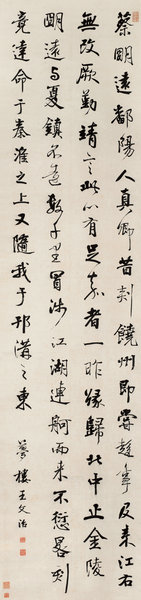 蔡明遠鄱陽人真卿昔刺饒州即嘗趨事及来江右
無改厥勤靖言此心有足嘉者一昨緣歸北中止金陵
明遠与夏鎮不遠數千里冒涉江湖連舸而来不愆晷刻
竟達命于秦淮之上又隨我于邗溝之東
夢樓王文治